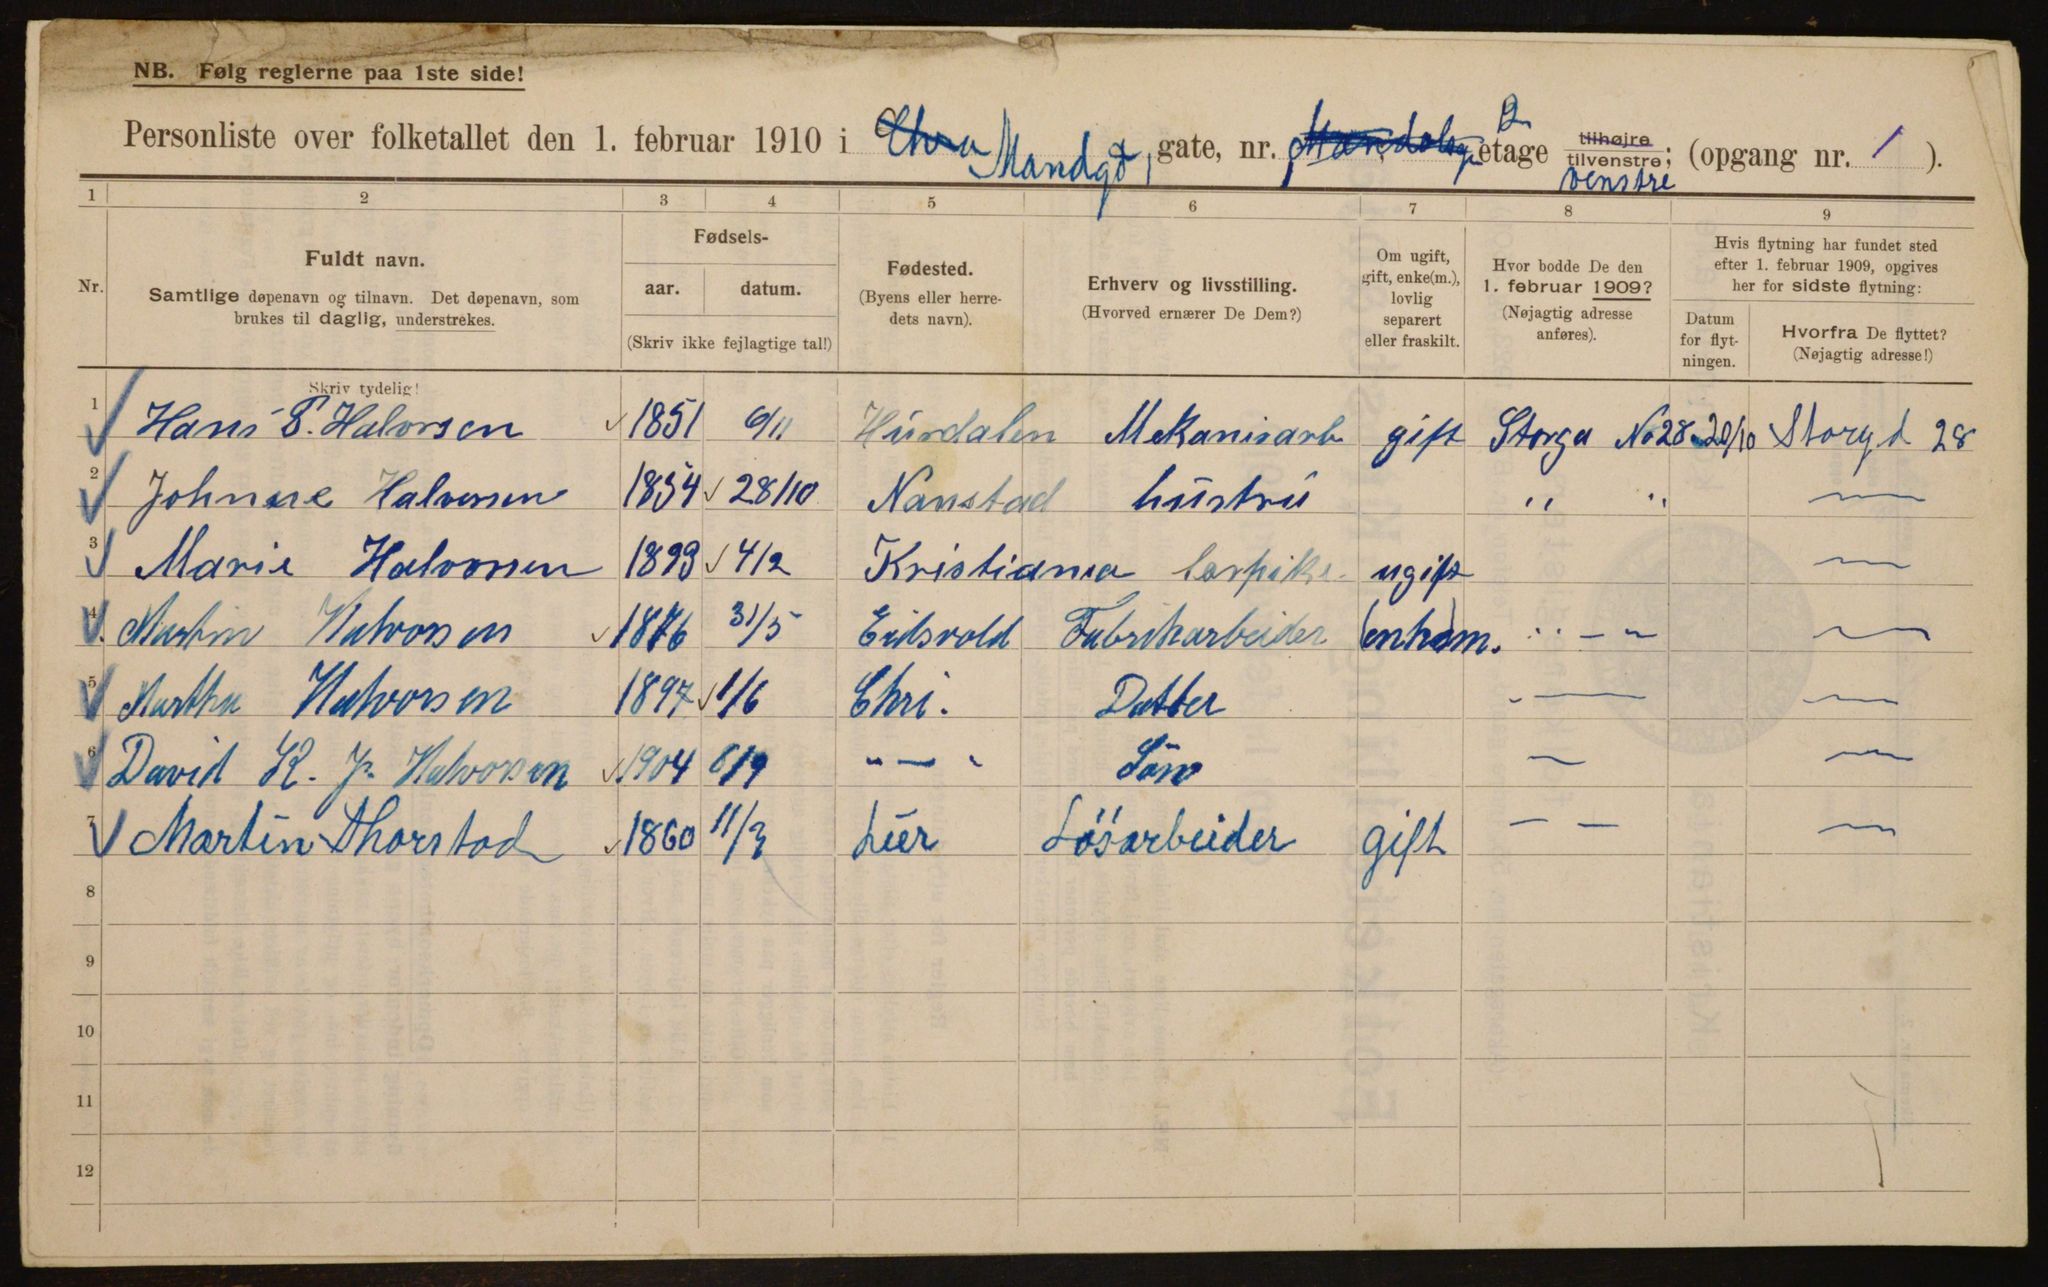 NB. Følg reglerne paa 1ste side!
Personliste over folketallet den 1. februar 1910 i Mandgt, gate, nr. 1 2 etage tilhøjre tilvenstre; venstre (opgang nr. 1 ).
1 2 3 4 5 6 7 8 9
Nr.
Fuldt navn.
Samtlige døpenavn og tilnavn. Det døpenavn, som
brukes til daglig, understrekes.
Fødsels-
aar. datum.
(Skriv ikke fejlagtige tal!)
Fødested.
(Byens eller herre-
dets navn).
Erhverv og livsstilling.
(Hvorved ernærer De Dem?)
Om ugift,
gift, enke(m.),
lovlig
separert
eller fraskilt.
Hvor bodde De den
1. februar 1909?
(Nøjagtig adresse
anføres).
Hvis flytning har fundet sted
efter 1. februar 1909, opgives
her for sidste flytning:
Datum
for flyt-
ningen.
Hvorfra De flyttet?
(Nøjagtig adresse!)
Skriv tydelig!
1 Hans P. Halvorsen 1851 6/11 Hurdalen Mekanisarb gift Storga No 28 20/10 Storgt 28
2 Johnne Halvorsen 1854 28/10 Nanstad hustru " "
3 Marie Halvorsen 1893 4/2 Kristiania ugift
4 Martin Halvorsen 1876 31/5 Eidsvold Fabrikarbeider enkem. " — "
5 Martha Halvorsen 1897 1/6 Chri. Datter
6 David K. J. Halvorsen 1904 6/9 " — " Søn
7 Martin Thorstad 1860 11/3 Lier Løsarbeider gift — —
8
9
10
11
12